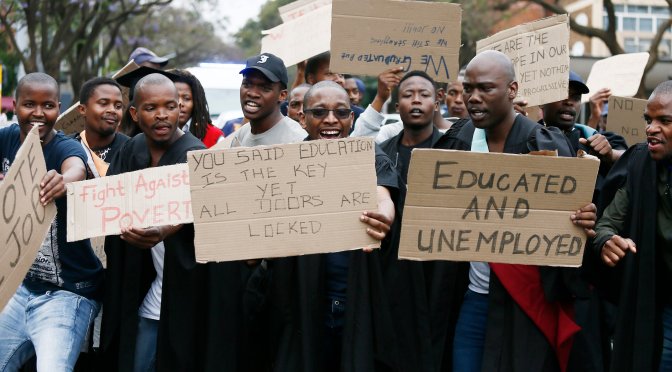 FIGHT AGAINST
POVERT
YOU SAID EDUCATION
IS THE KEY
YET
ALL DOORS ARE
LOCKED
EDUCATED
AND
UNEMPLOYED
ARE THE
IN OUR
YET
OTE
NO